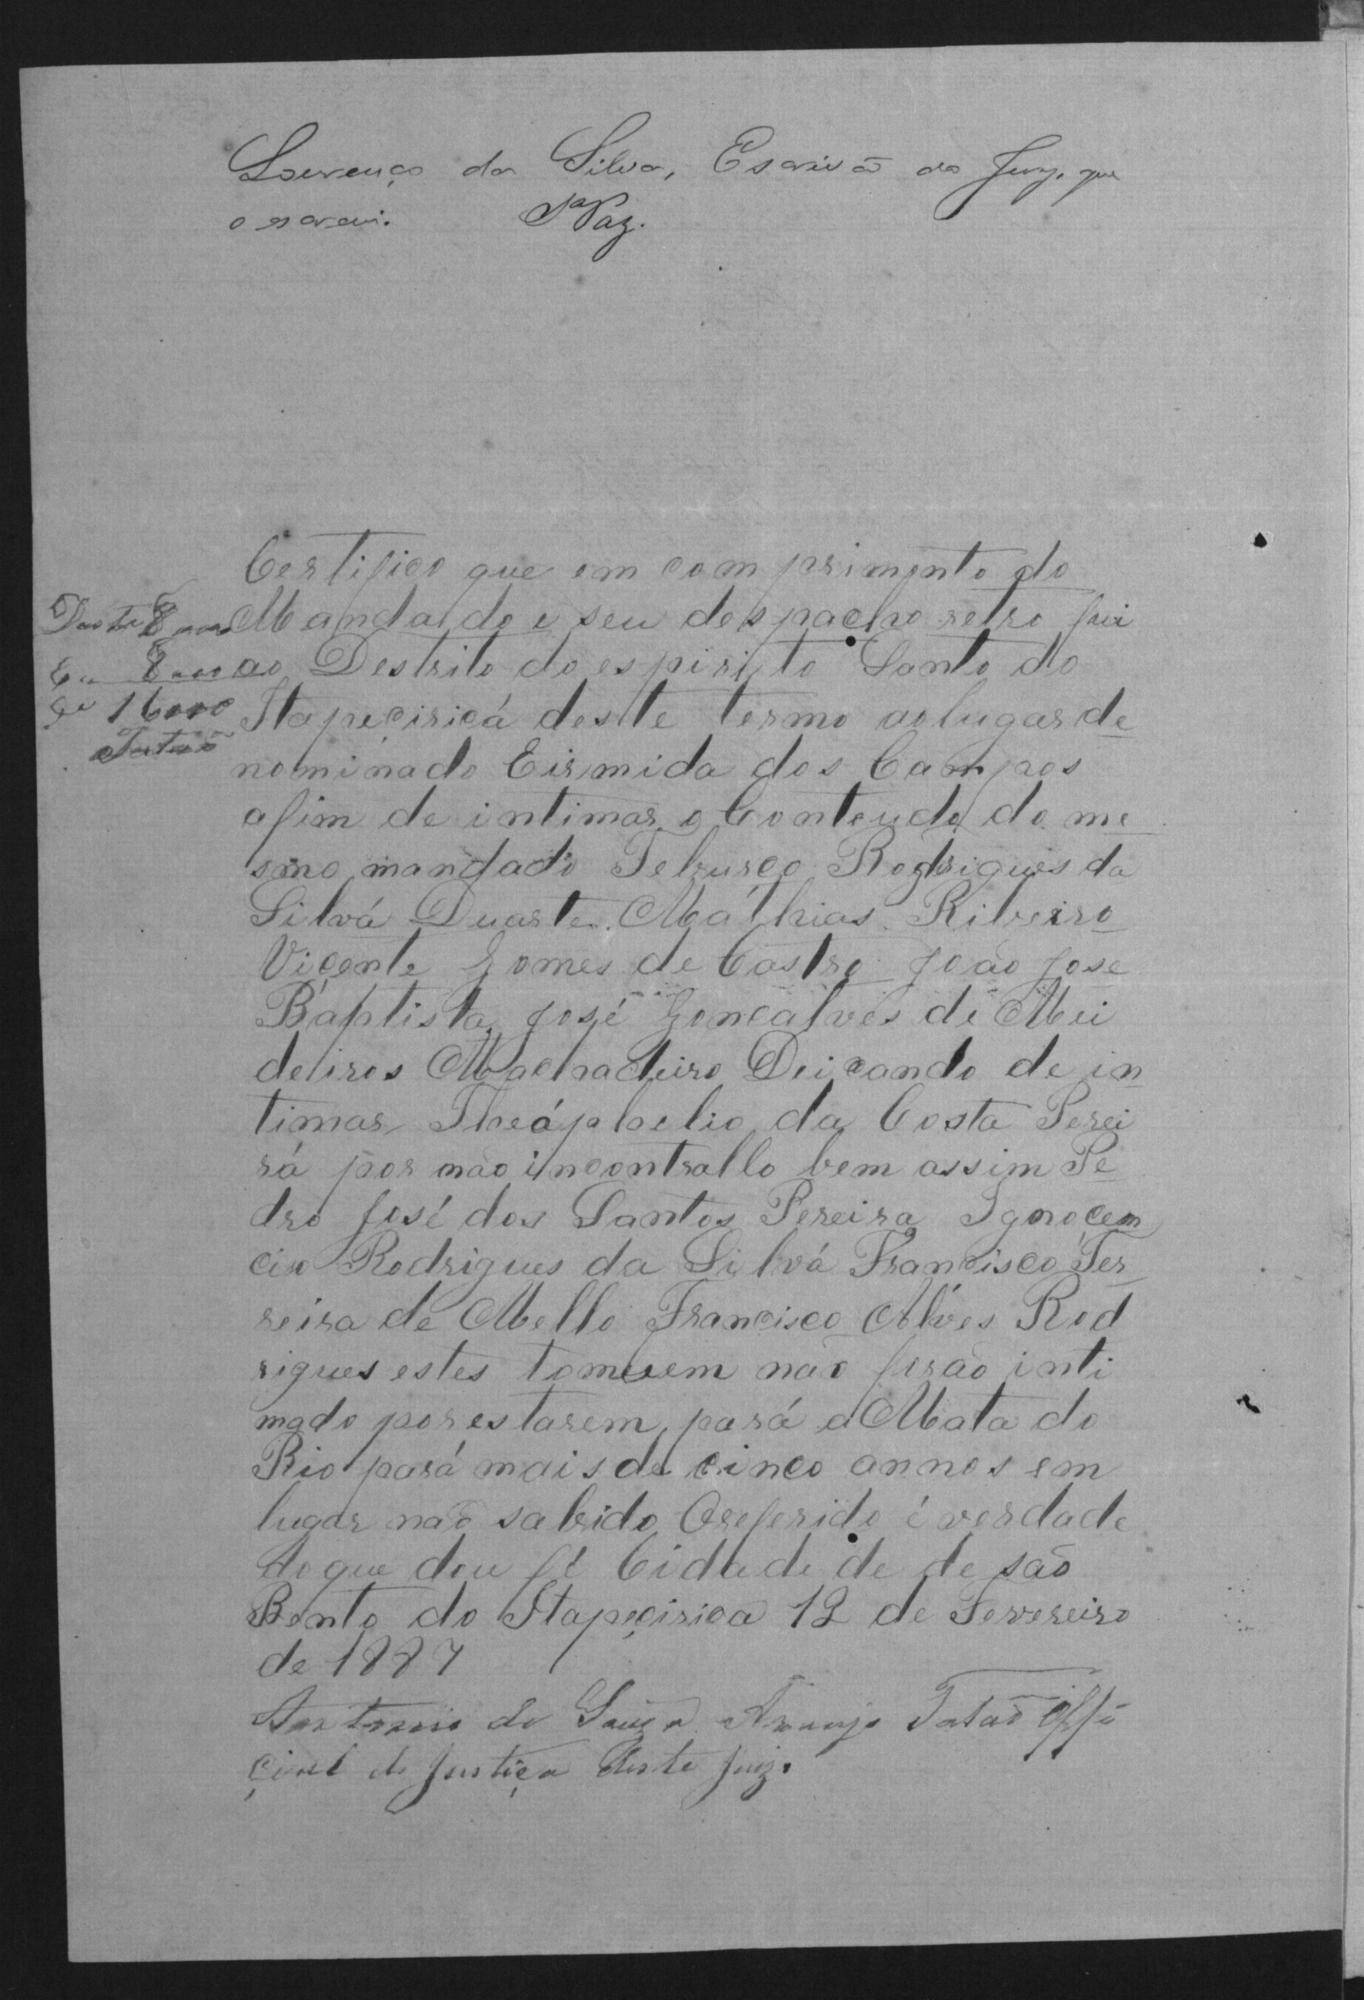 Lourenço da Silva, Escrivão do Jury, que
o escrevi. Vaz.
Certifico que em comprimento do
Mandado e seu despacho retro fui
ao Destrito do espirito Santo do
Itapeciricá deste termo ao lugar de
nominado Eirmida dos Campos
afim de intimar o Conteudo do me
smo mandado Teburço Rodrigues da
Silvá Duarte Mathias Ribeiro
Vicente Gomes de Castro João Jose
Baptista José Goncalves de Mei
deiros Machadeiro Deicando de in
timar Theóphelio da Costa Perei
rá por não incontrallo bem assim Pe
dro José dos Santos Pereira Ignocen
cio Rodrigues da Silvá Francisco Fer
reira de Mello Francisco Alves Rod
rigues estes tomem não forão inti
mado por estarem pará a Mata do
Rio pará mais de cinco annos em
lugar não sabido Oreferido é verdade
do que dou fé Cidade de de são
Bento do Itapecirica 12 de Fevereiro
de 1887
Antonio de Souza Araujo Tatão Offi
cial de Justiça deste Juiz.
8000
8000
16000
Tatão